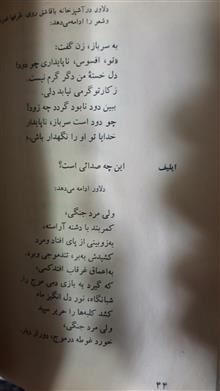 دلاور در آشپزخانه با قاشق روی
و شعر را ادامه می‌دهد:
به سرباز، زن گفت:
«تو، افسوس، ناپایداری چو دود!
دل خستهٔ من دگر گرم نیست.
ز کار تو گرمی نیابد دلی.
ببین دود نابود گردد چه زود!
چو دود است سرباز، ناپایدار
خدایا تو او را نگهدار باش.»
ایلیف این چه صدائی است؟
دلاور ادامه می‌دهد:
ولی مرد جنگی،
کمربند با دشنه آراسته،
به زوبینی از پای افتاد و مرد
کشیدش به بر، تندموجی
به اعماق غرقاب
که گیرد به بازی دمی موج را
شبانگاه، نور دل انگیز ماه
کشد کلبه‌ها را حریر سپید
ولی مرد جنگی،
خورد غوطه در موج، دور از دیار.
۳۴